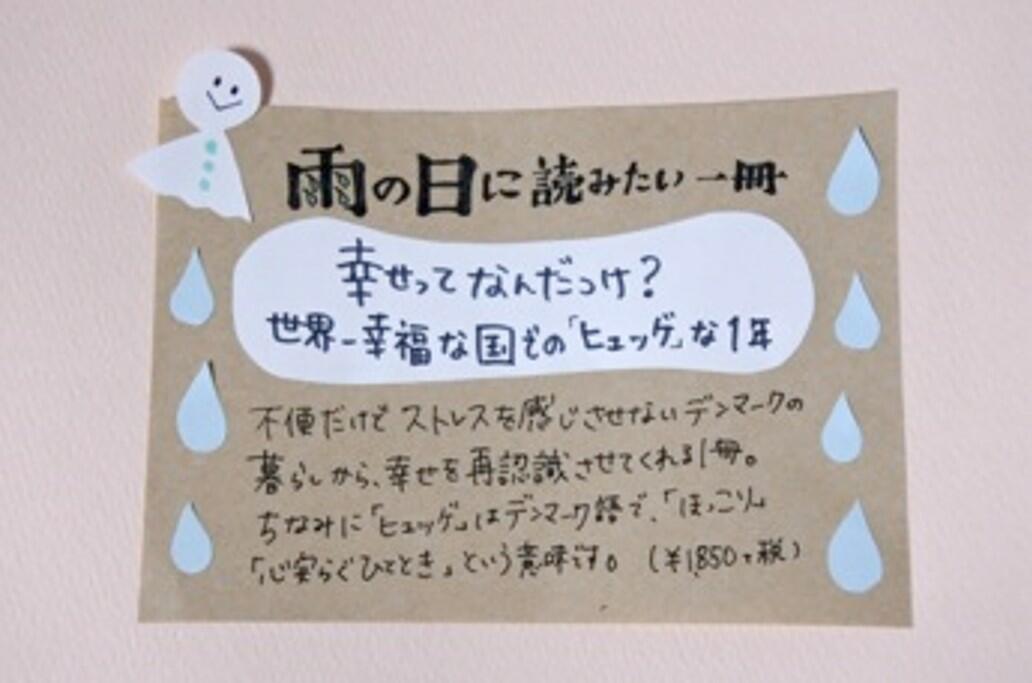 雨の日に読みたい一冊
幸せってなんだっけ?
世界一幸福な国での「ヒュッゲ」な1年
不便だけど ストレスを感じさせないデンマークの
暮らしから、幸せを再認識させてくれる1冊。
ちなみに「ヒュッゲ」はデンマーク語で、「ほっこり」
「心安らぐひととき」という意味です。 (¥1,850+税)